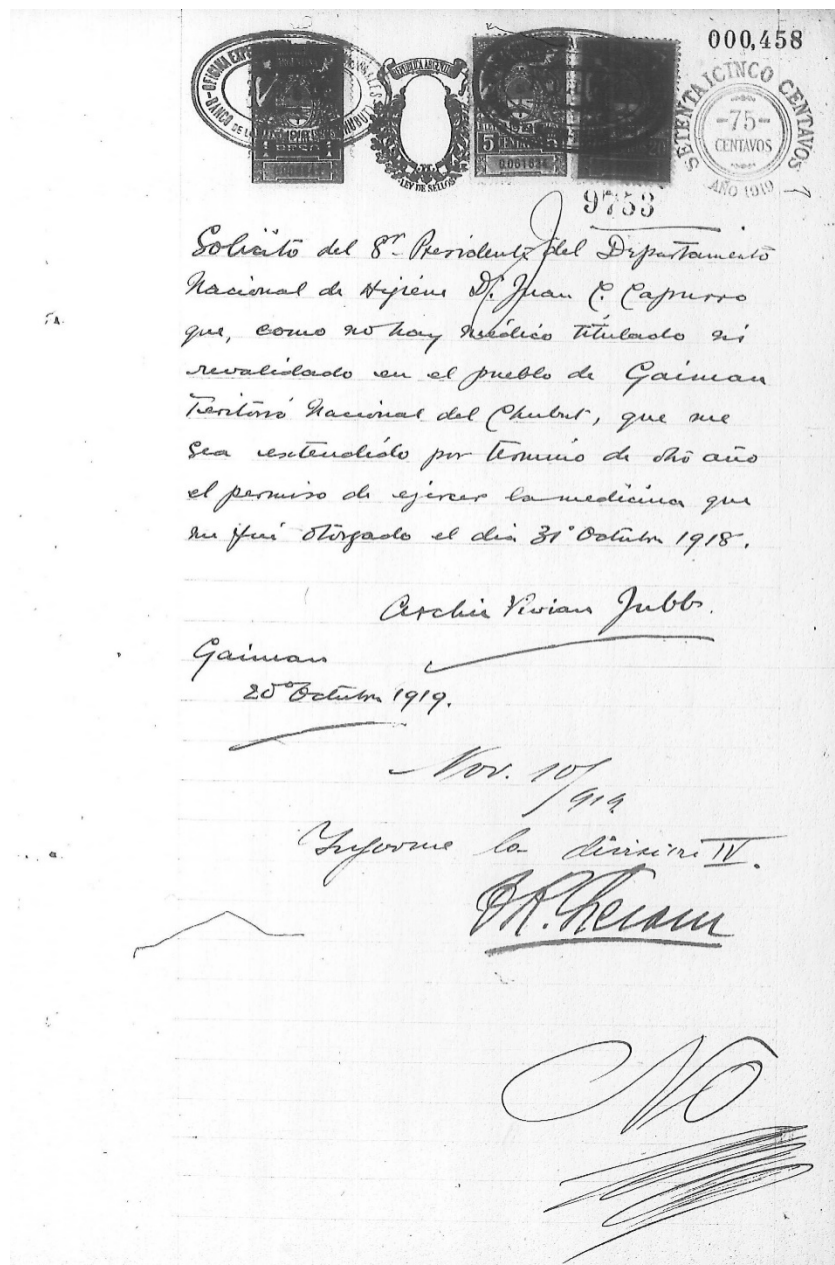 000,458
SETENTA I CINCO CENTAVOS
-75-
CENTAVOS
AÑO 1919
REPUBLICA ARGENTINA
LEY DE SELLOS
PESO
5 CENTAVOS 5
9753
Solicito del Sr. Presidente del Departamento
Nacional de Higiene Dr. Juan C. Capurro
que, como no hay médico titulado ni
revalidado en el pueblo de Gaiman
Teritorió Nacional del Chubut, que me
sea extendido por termino de otro año
el permiso de ejercer la medicina que
me fui otorgado el dia 31° Octubre 1918.
Archie Vivian Jubb.
Gaiman
20° Octubre 1919.
Nov. 10/919
Informe la división IV.